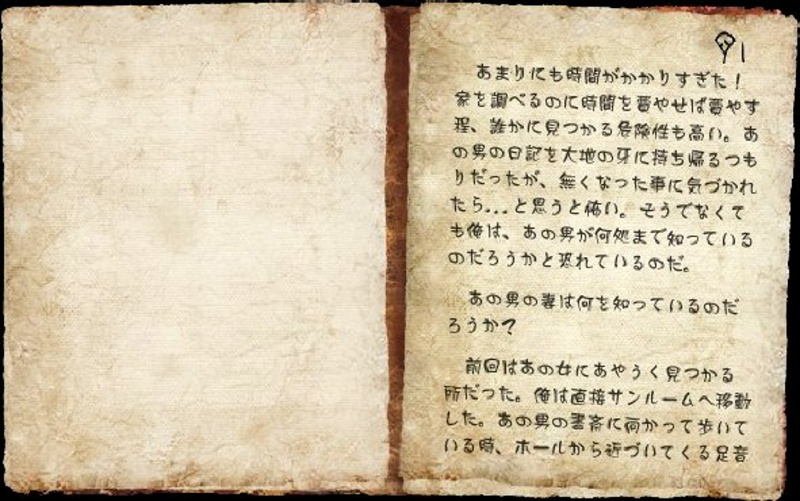 1
あまりにも時間がかかりすぎた！
家を調べるのに時間を費やせば費やす
程、誰かに見つかる危険性も高い。あ
の男の日記を大地の牙に持ち帰るつも
りだったが、無くなった事に気づかれ
たら...と思うと怖い。そうでなくて
も俺は、あの男が何処まで知っている
のだろうかと恐れているのだ。
あの男の妻は何を知っているのだ
ろうか？
前回はあの女にあやうく見つかる
所だった。俺は直接サンルームへ移動
した。あの男の書斎に向かって歩いて
いる時、ホールから近づいてくる足音